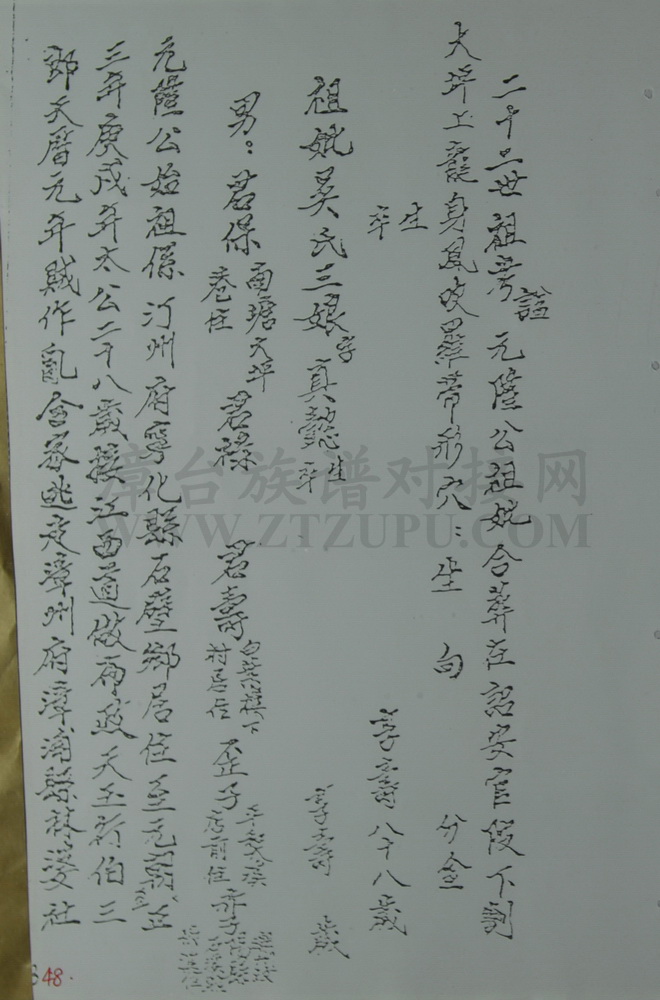 二十二世祖考諡元隆公祖妣合葬在詔安官陂下割
大坪上龍身風吹羅帶形穴：坐 向 分金
生 卒 享壽八十八歲
祖妣吳氏三娘字真懿生卒 享壽 歲
男：君保 南塘大坪 君祿 君壽 村居住 歪子 店前住
元隆公始祖係汀州府寧化縣石壁鄉居住至元朝至
三年庚戌年太公二十八歲 江西道 天 伯三
郎天曆元年賊作亂合家逃走漳州府漳浦縣 社
漳台族谱对接网
WWW.ZTZUPU.COM
48.